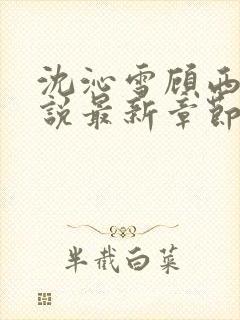 沈沁雪顾西
说最新章节
半截白菜